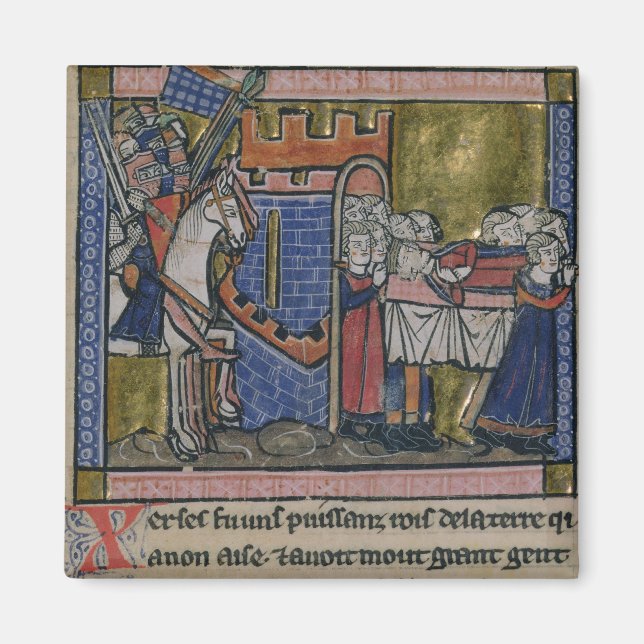 Xerses fu uns puissanz rois de la terre qi
a non aise ⁊ avoit mout grant gent